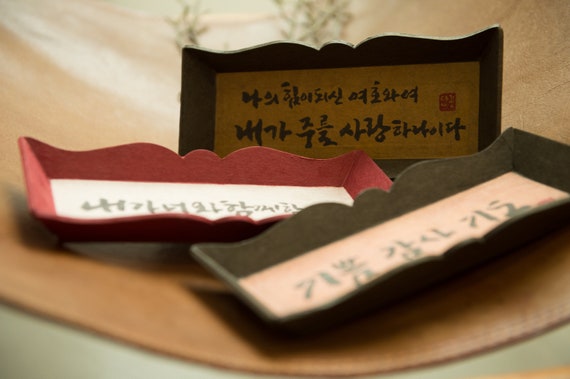 나의 힘이되신 여호와여
내가 주를 사랑하나이다
내가 너와 함께
기쁨 감사 기도